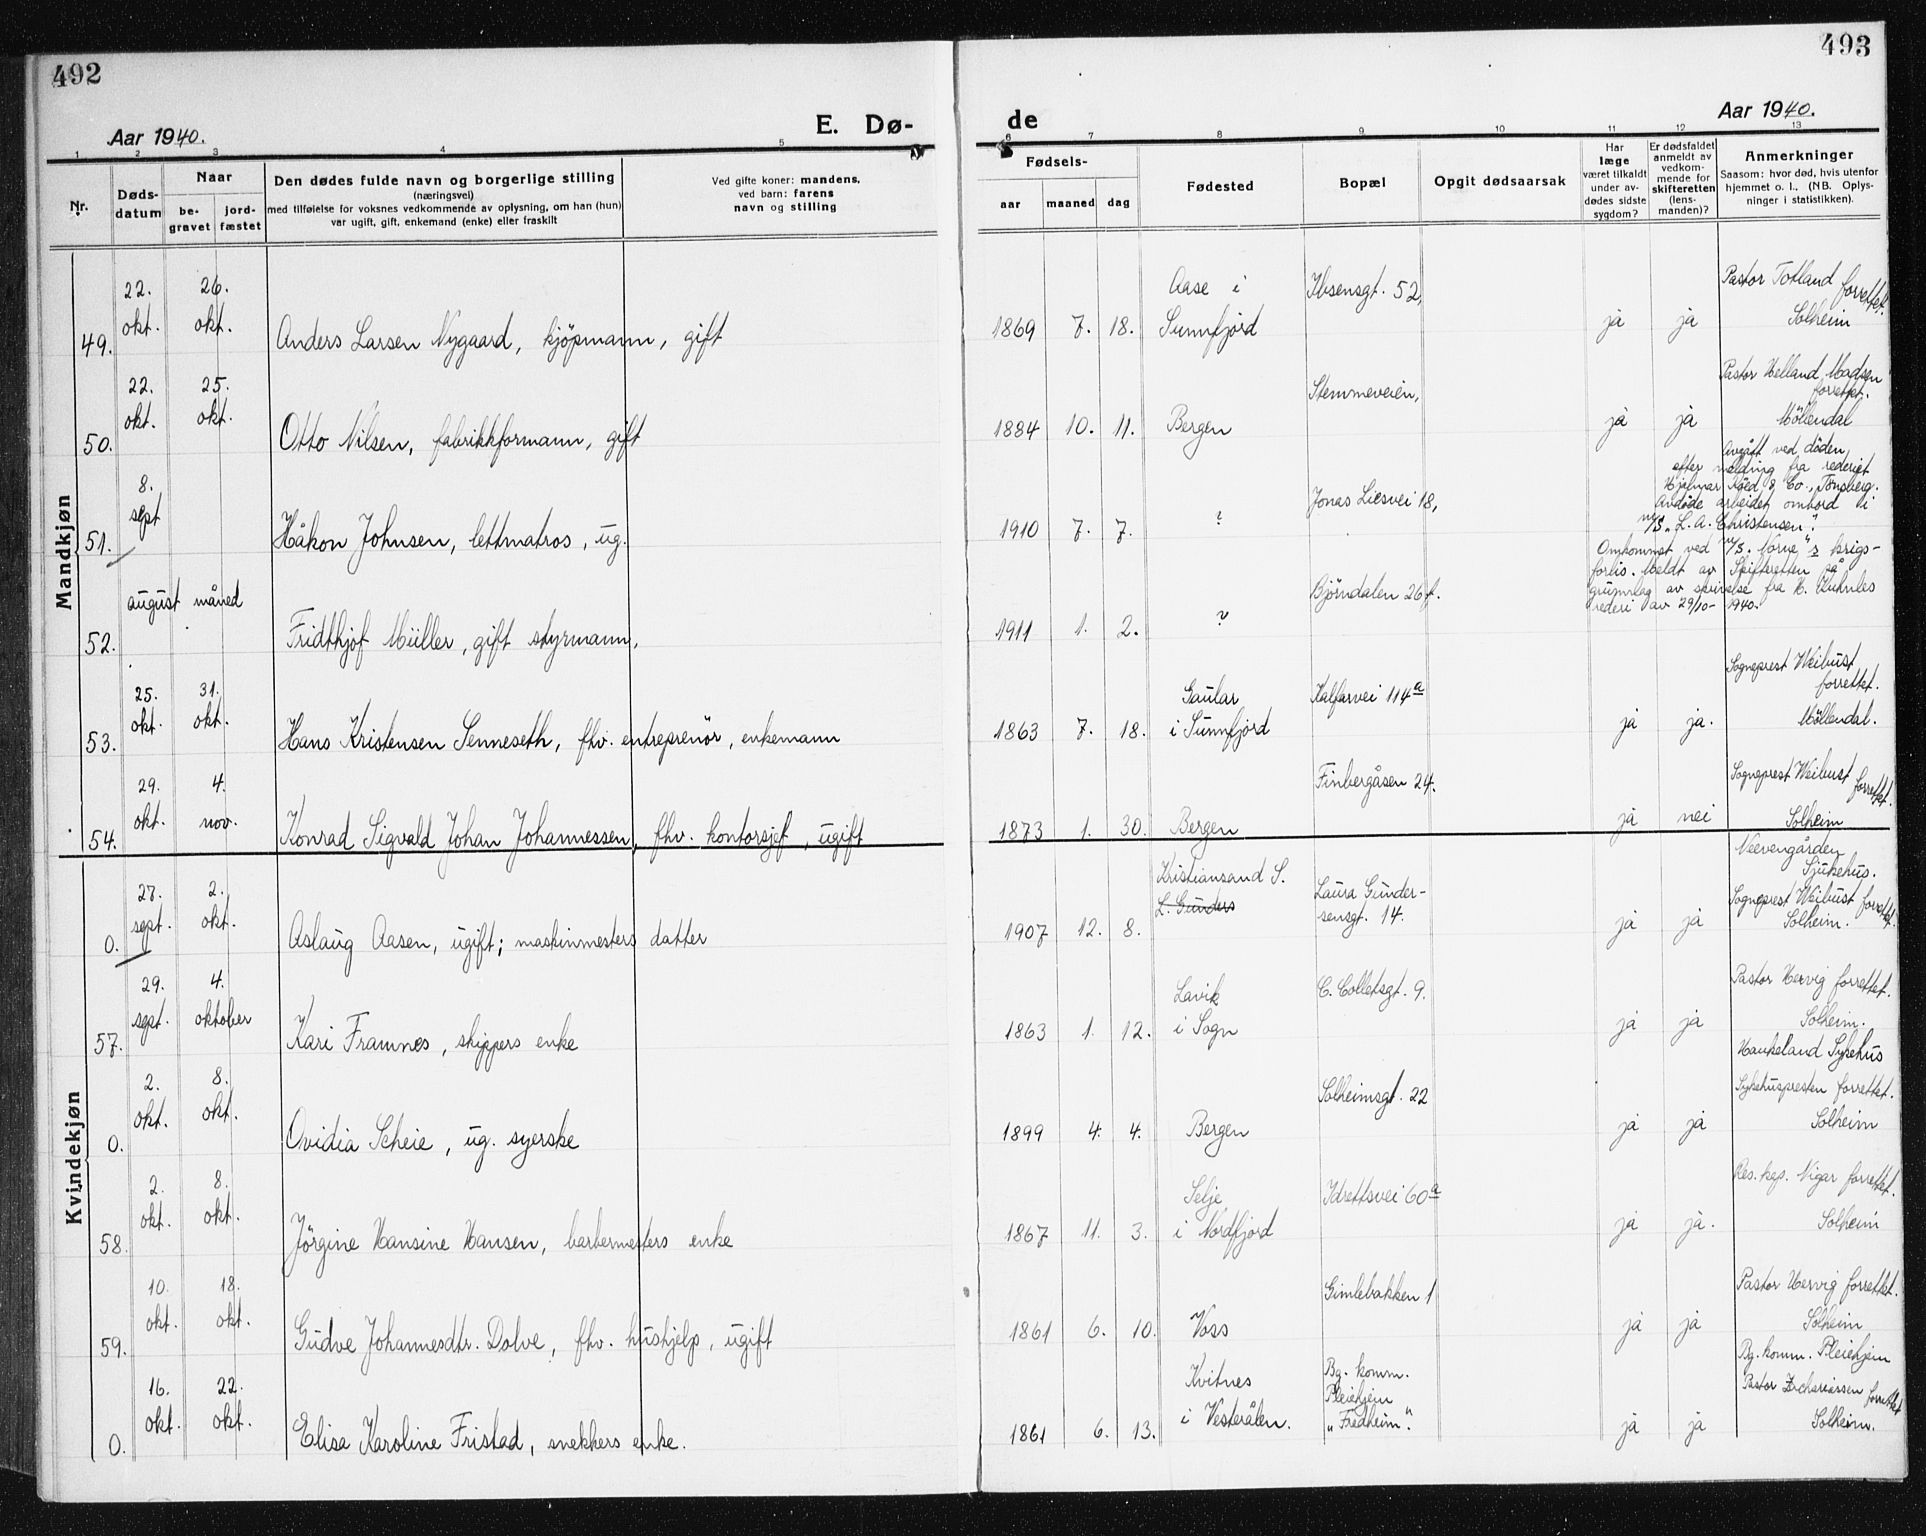 492
Aar 1940.
E. Dø-
1 2 3 4 5
Nr.
Døds-
datum
Naar
be-
gravet
jord-
fæstet
Den dødes fulde navn og borgerlige stilling
(næringsvei)
med tilføielse for voksnes vedkommende av oplysning, om han (hun)
var ugift, gift, enkemand (enke) eller fraskilt
Ved gifte koner: mandens,
ved barn: farens
navn og stilling
Mandkjøn
22. 26.
okt. okt.
49. Anders Larsen Nygaard, kjöpmann, gift
22. 25.
okt. okt.
50. Otto Nilsen, fabrikkformann, gift
8.
sept
51. Håkon Johnsen, lettmatros, ug.
august måned
52. Fridthjof Müller, gift styrmann.
25. 31.
okt. okt.
53. Hans Kristensen Senneseth, fhv. entreprenör, enkemann
29. 4.
okt. nov.
54. Konrad Sigvald Johan Johannessen, fhv. kontorsjef, ugift
Kvindekjøn
27. 2.
sept. okt.
0. Aslaug Aasen, ugift; maskinmesters datter
29. 4.
sept. oktober
57. Kari Framnes, skippers enke
2. 8.
okt. okt.
0. Ovidia Scheie, ug. syerske
2. 8.
okt. okt.
58. Jörgine Hansine Hansen, barbermesters enke
10. 18.
okt. okt.
59. Gudve Johannesdtr. Dolve, fhv. hushjelp, ugift
16. 22.
okt. okt.
0. Elisa Karoline Fristad, snekkers enke.
493
de
Aar 1940.
6 7 8 9 10 11 12 13
Fødsels-
aar maaned dag
Fødested
Bopæl
Opgit dødsaarsak
Har
læge
været tilkaldt
under av-
dødes sidste
sygdom?
Er dødsfaldet
anmeldt av
vedkom-
mende for
skifteretten
(lens-
manden)?
Anmerkninger
Saasom: hvor død, hvis utenfor
hjemmet o. l., (NB. Oplys-
ninger i statistikken).
Aase i Ibsensgt. 52, Pastor Totland forrettet.
1869 7. 18. Sunnfjord ja ja Solheim
Stemmeveien, Pastor Helland Madsen
forrettet.
1884 10. 11. Bergen ja ja Möllendal
Avgått ved döden
efter melding fra rederiet
Hjalmar Röed & Co., Tönsberg.
Jonas Liesvei 18, Avdöde arbeidet ombord i
1910 7. 7. ? M/S „L. A. Christensen".
Omkommet ved M/S. "Norne"s krigs-
forlis. Meldt av Skifteretten på
Björndalen 26 f. grunnlag av skrivelse fra H. Kuhnles
rederi av 29/10- 1940.
1911 1. 2. ?
Sogneprest Weibust
Gaular Kalfarvei 114a forrettet.
1863 7. 18. i Sunnfjord ja ja. Möllendal.
Finbergåsen 24. Sogneprest Weibust forrettet.
1873 1. 30. Bergen ja nei Solheim
Neevengården
Kristiansand S. Sjukehus.
L. Gunders Laura Gunder- Sogneprest Weibust forrettet.
1907 12. 8. sensgt. 14. ja ja Solheim.
Lavik C. Colletsgt. 9. Pastor Hervig forrettet.
1863 1. 12. i Sogn ja ja Solheim.
Haukeland Sykehus
Solheimsgt. 22 Sykehuspresten forrettet.
1899 4. 4. Bergen ja ja Solheim
Selje Idrettsvei 60a Res. kap. Nigar forrettet.
1867 11. 3. i Nordfjord ja ja. Solheim
Gimlebakken 1 Pastor Hervig forrettet.
1861 6. 10. Voss ja ja Solheim
Kvitnes Bg. komm. Bg. komm. Pleiehjem
Pleiehjem Pastor Zachariassen forrettet
1861 6. 13. i Vesterålen. „Fredheim". ja ja Solheim.